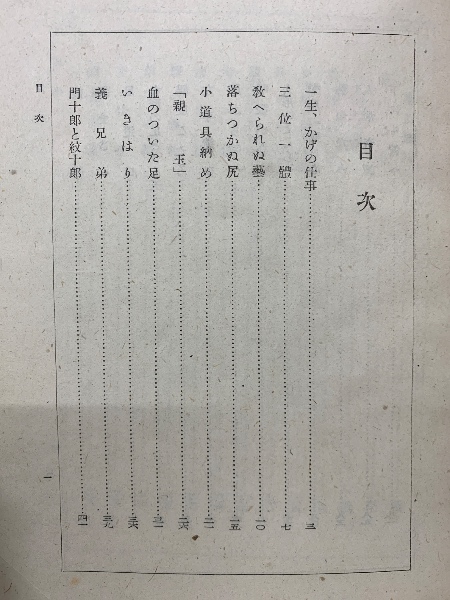 目次
一生、かげの仕事……三
三位一體……七
敎へられぬ藝……一〇
落ちつかぬ尻……一五
小道具納め……二一
「親玉」……二六
血のついた足……三一
いきはり……三六
義兄弟……三九
門十郎と紋十郎……四一
目次
一